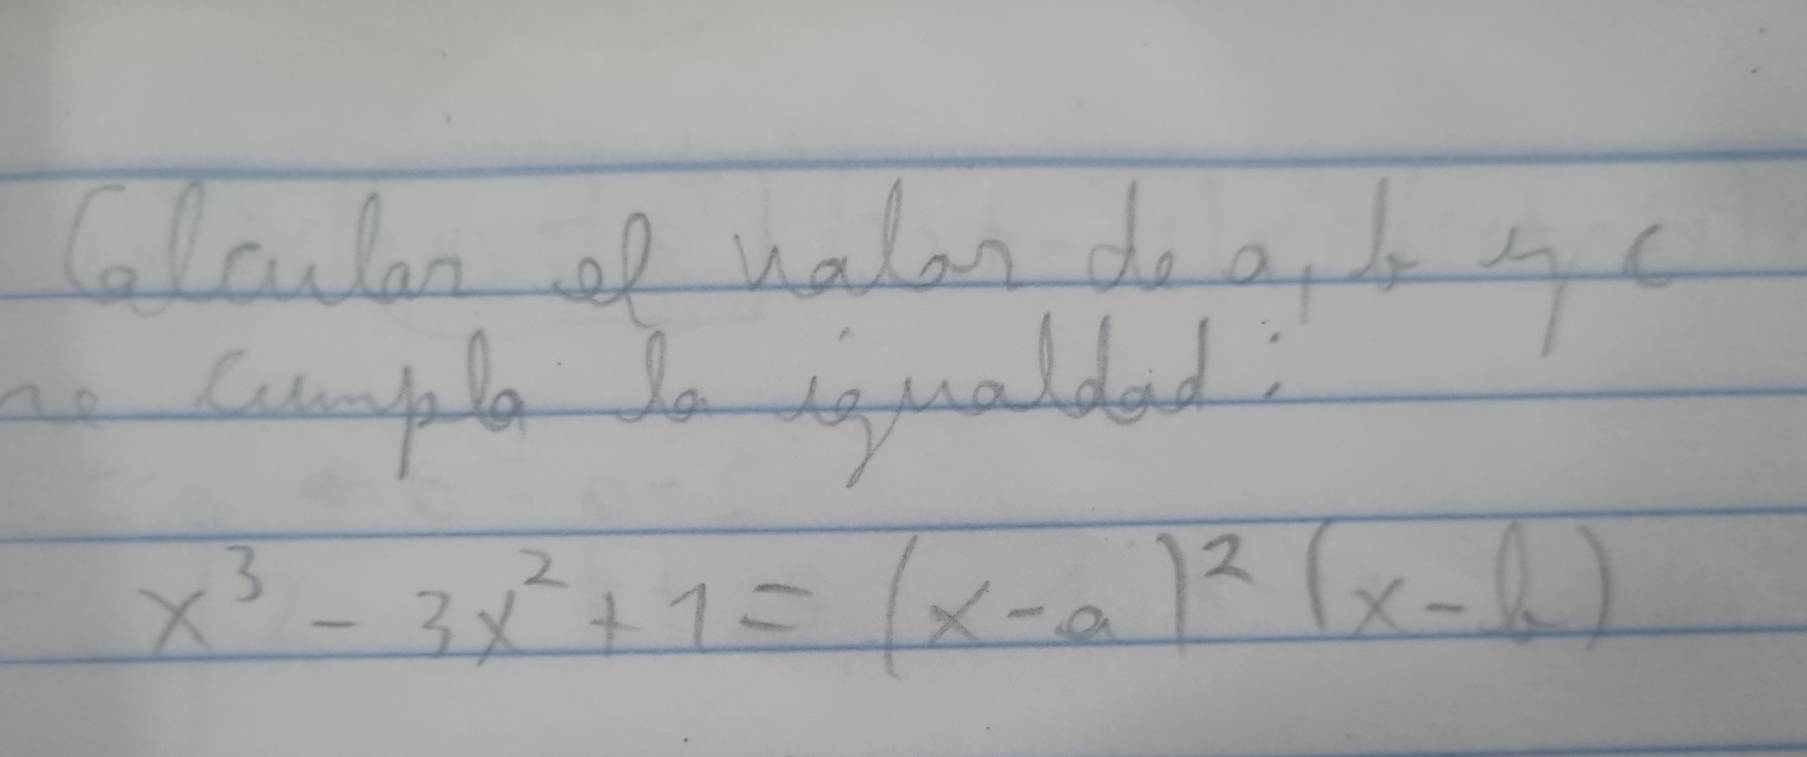 Calcular el valor de a, b y c
se cumpla la igualdad:
x³ - 3x² + 1 = (x-a)² (x-b)